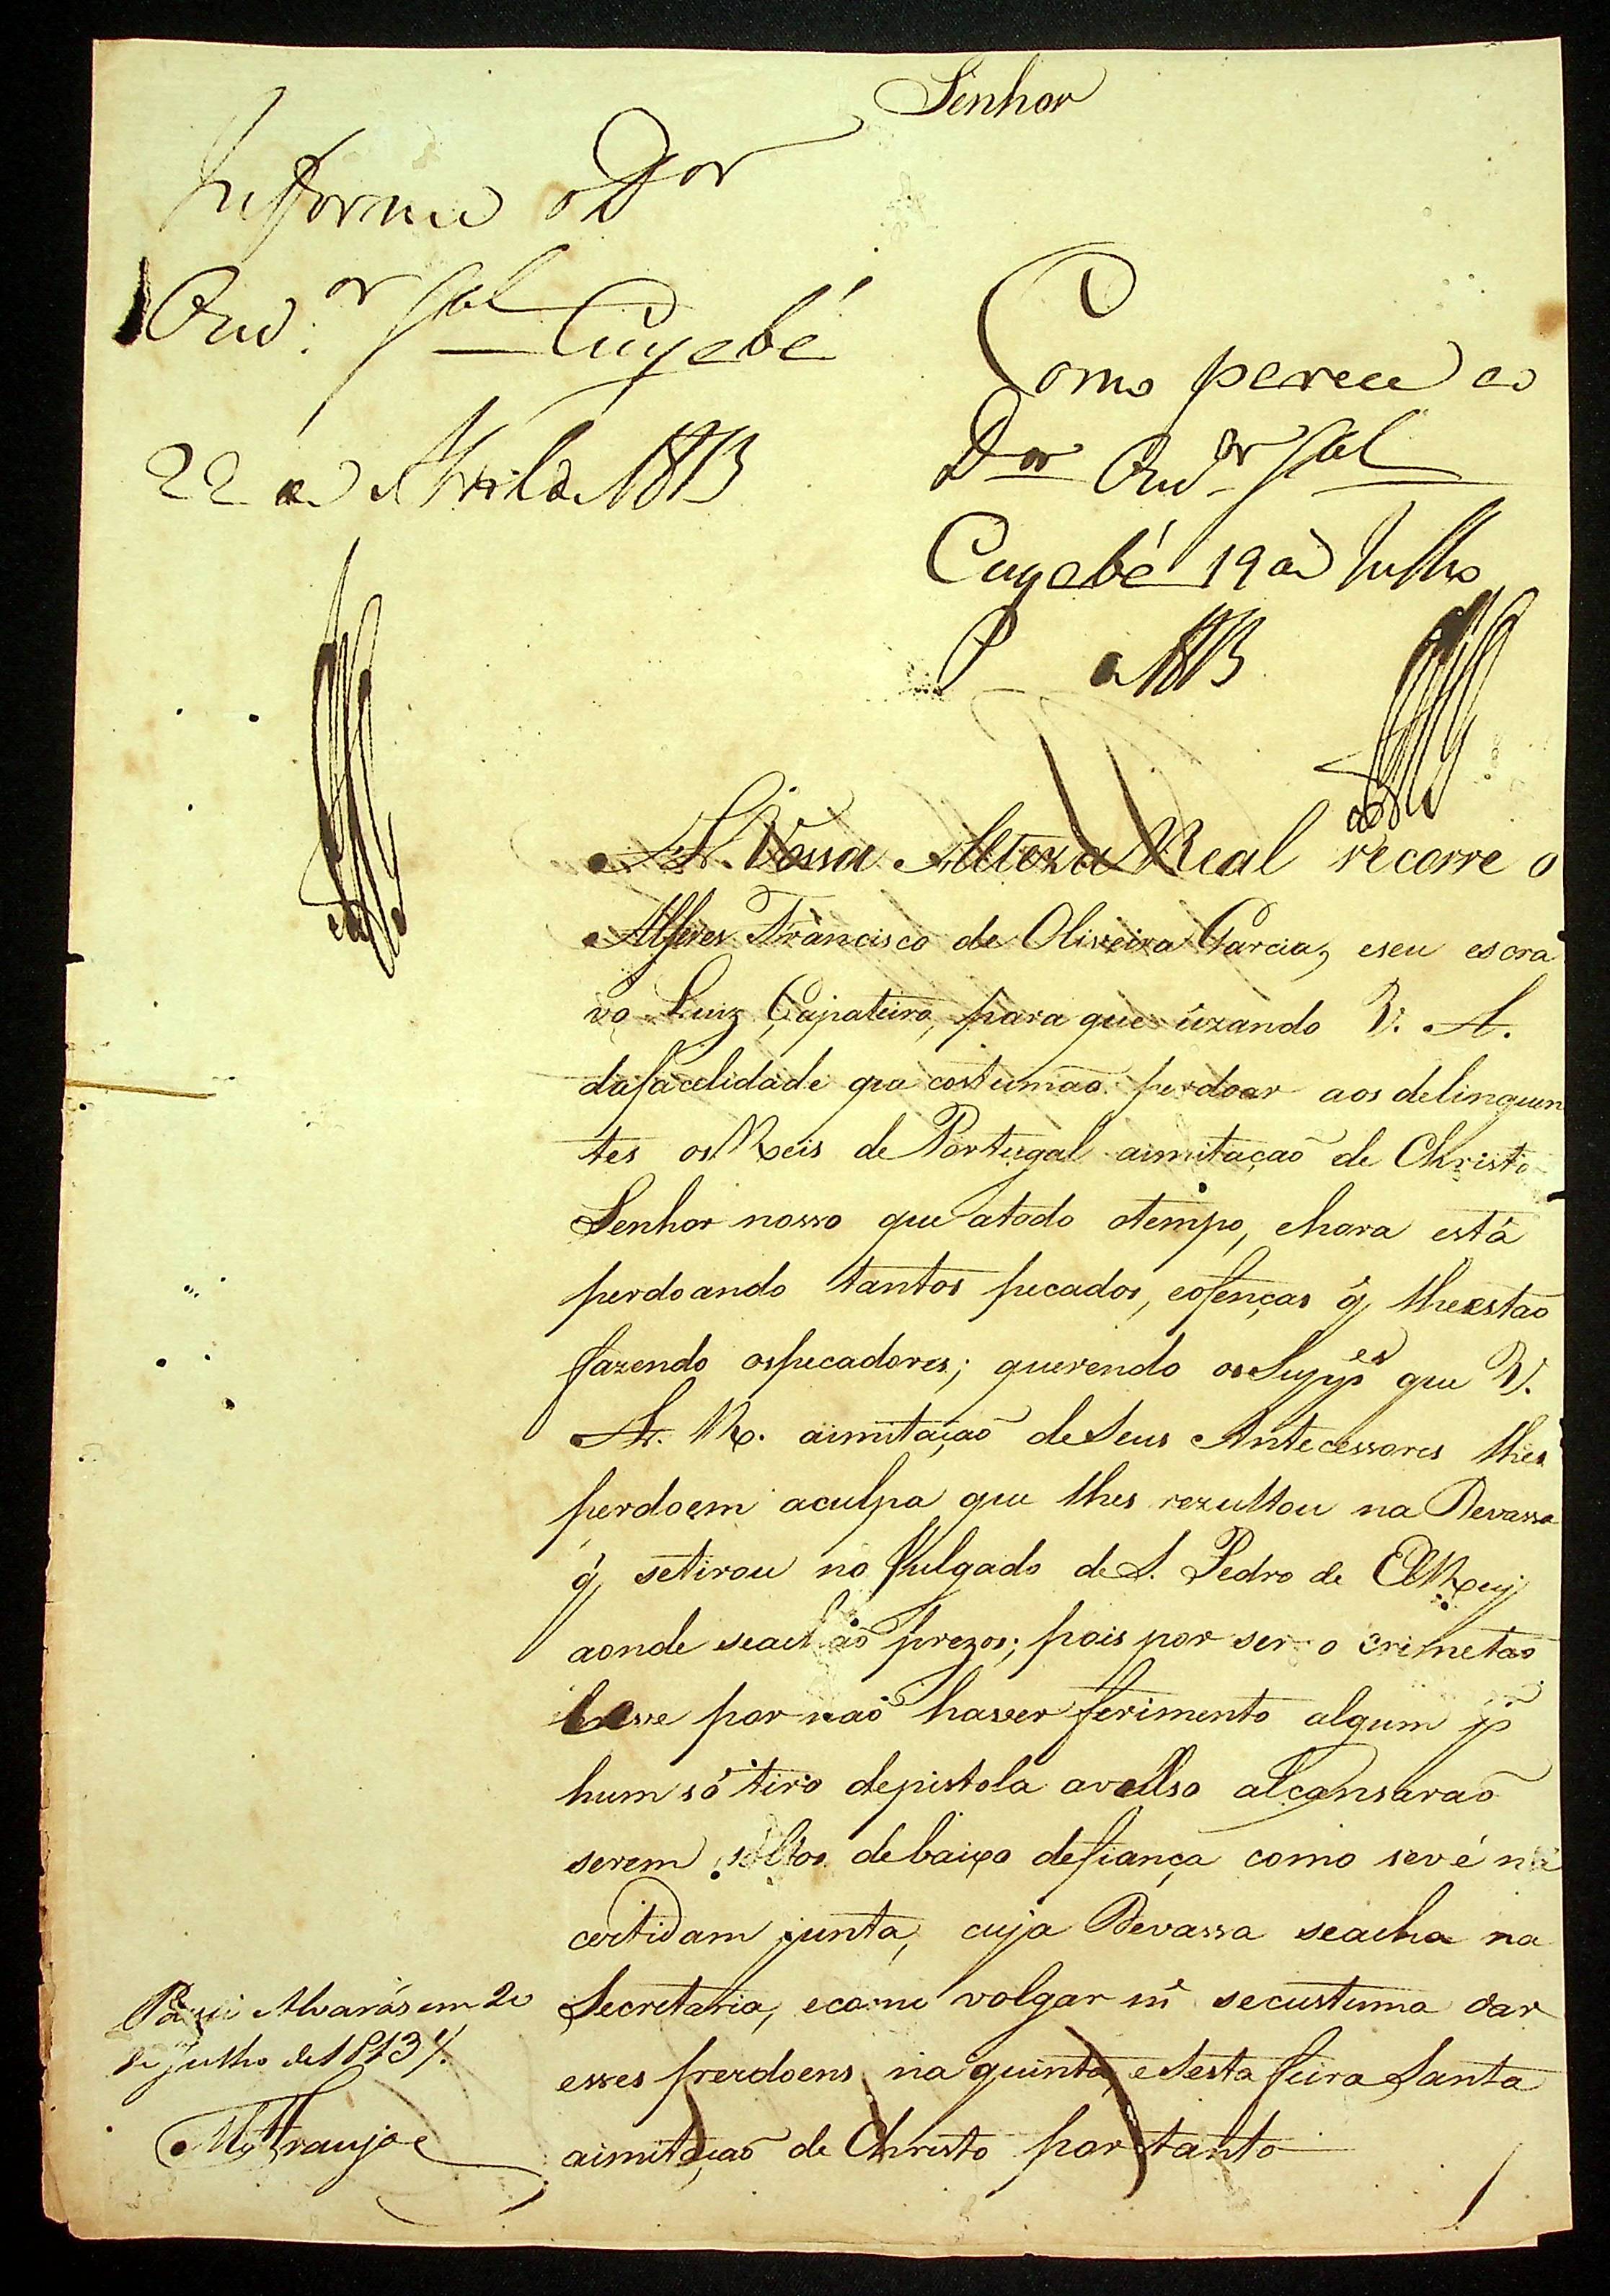 Senhor
Informe o D.or
Ouv.or g.al Cuyabá
22 de Abril de 1813
Como parece ao
D.or Ouv.or g.al
Cuyabá 19 de Julho
de 1813
A Vossa Alteza Real recorre o
Alferes Francisco de Oliveira Garcia, eseu escra
vo Luiz Çapateiro, para que uzando V. A.
dafacelidade que costumaõ perdoar aos delinquen
tes osReis de Portugal aimitaçaõ de Christo
Senhor nosso que atodo otempo, ehora está
perdoando tantos pecados, eofenças q̃ lheestaõ
fazendo ospecadores; querendo osSupp.es que V.
A. R. aimitaçaõ deSeus Antecessores lhes
perdoem aculpa que lhes rezultou na Devassa
q̃ setirou no Julgado deS. Pedro de ElRey
aonde seachaõ prezos; pois por ser o crimetaõ
leve por naõ haver ferimento algum p̃
hum só tiro depistola avulso alcansaraõ
serem soltos debaixo defiança como sevé na
certidam junta, cuja Devassa seacha na
Secretaria, ecomo volgar m.e secustuma dar
esses perdoens na quinta, eSesta feira Santa
aimitaçaõ de Christo portanto
Alvarás em 20
de Julho de 1813
Araujo